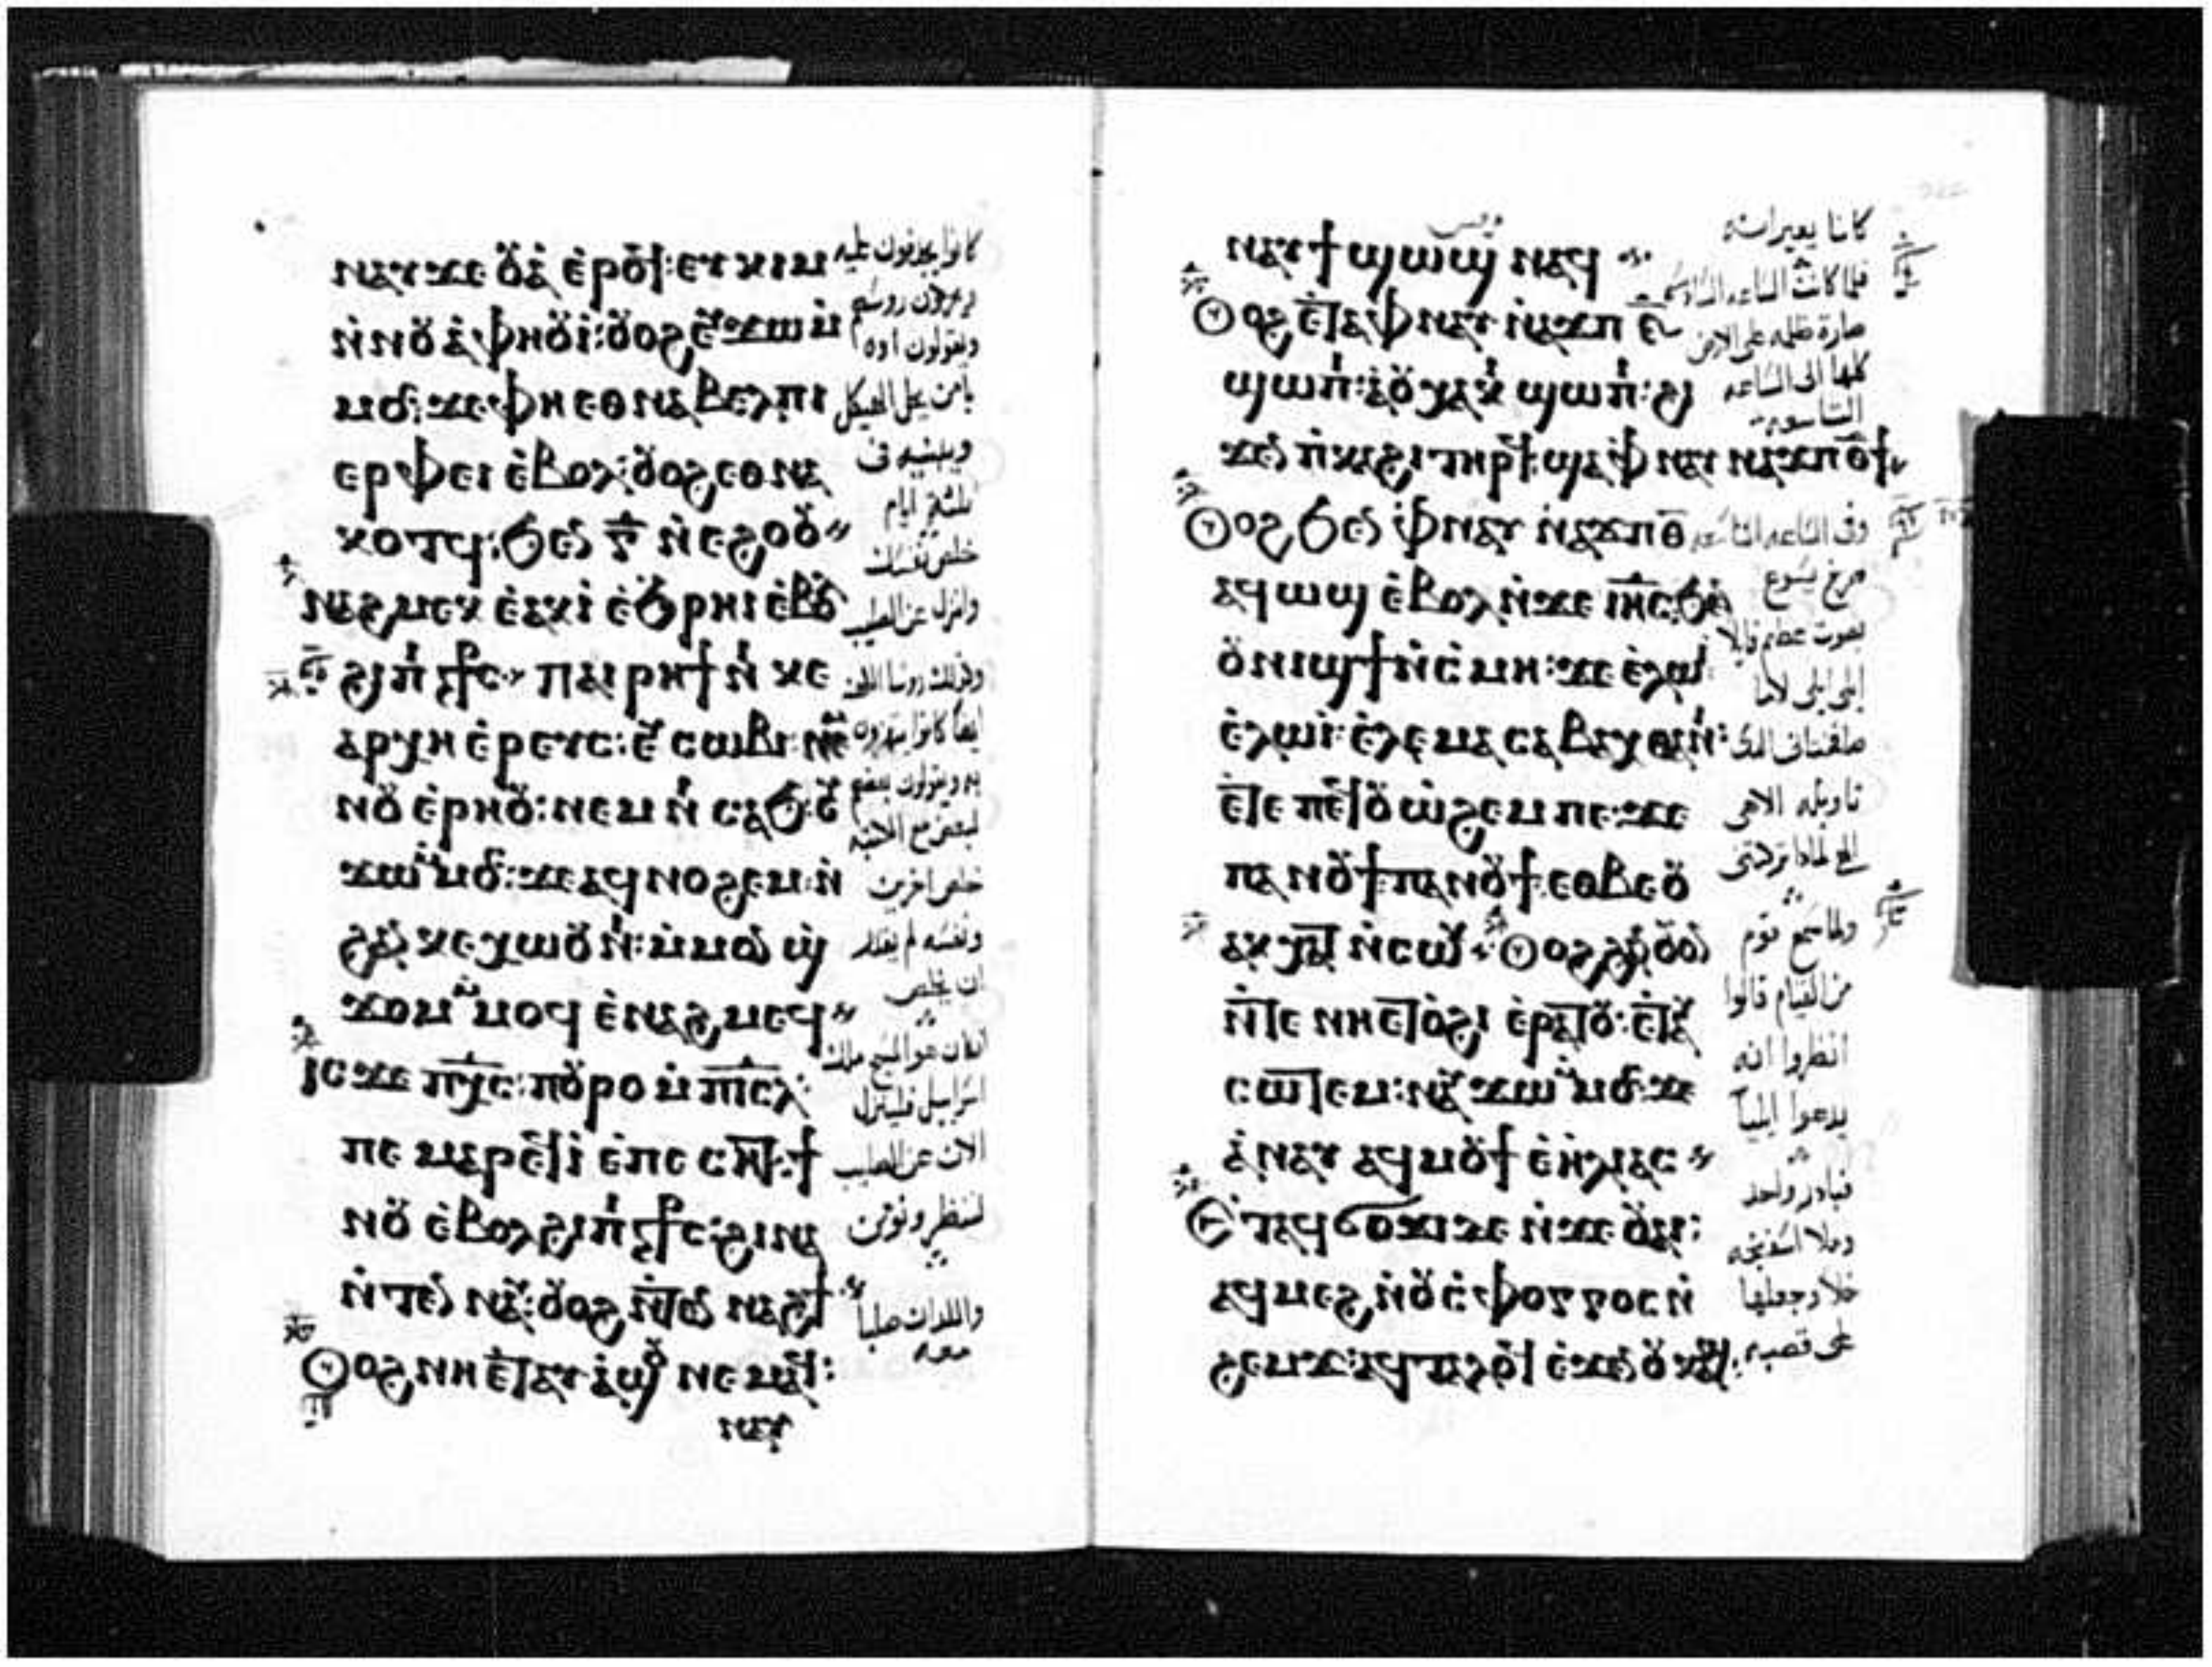 ⲛⲁⲩϫⲉ ⲟⲩⲁ ⲉ̀ⲣⲟϥ: ⲉⲩⲕⲓⲙ
ⲛ̀ⲛⲟⲩⲁ̀ⲫⲏⲟⲩⲓ̀: ⲟⲩⲟϩ ⲉⲩϫⲱ ⲙ̀
ⲙⲟⲥ: ϫⲉ ⲫⲏⲉⲑⲛⲁⲃⲉⲗ ⲡⲓ
ⲉⲣⲫⲉⲓ ⲉ̀ⲃⲟⲗ: ⲟⲩⲟϩ ⲉⲑⲛⲁ
ⲕⲟⲧϥ: ϧⲉⲛ ⲅ̅ ⲛ̀ⲉϩⲟⲟⲩ
ⲛⲁϩⲙⲉⲕ ⲉ̀ⲁⲕⲓ̀ ⲉ̀ϧⲣⲏⲓ ⲉ̀ⲃⲟⲗ
ϩⲓ ⲡⲓ ⲥⲧⲁⲩⲣⲟⲥ ⲡⲁⲓⲣⲏϯ ⲛⲓ ⲕⲉ
ⲁⲣⲭⲏⲉ̀ⲣⲉⲩⲥ: ⲉⲩⲥⲱⲃⲓ ⲛⲉⲙ
ⲛⲟⲩⲉ̀ⲣⲏⲟⲩ: ⲛⲉⲙ ⲛⲓ ⲥⲁϧ: ⲉⲩ
ϫⲱ ⲙ̀ⲙⲟⲥ: ϫⲉ ⲁϥⲛⲟϩⲉⲙ ⲛ̀
ϩⲁⲛ ⲕⲉⲭⲱⲟⲩⲛⲓ: ⲙ̀ⲙⲟⲛ ϣ̀
ϫⲟⲙ ⲙ̀ⲙⲟϥ ⲉ̀ⲛⲁϩⲙⲉϥ
ⲓⲥϫⲉ ⲡⲭ̅ⲥ̅: ⲡⲟⲩⲣⲟ ⲙ̀ⲡⲓⲥ̅ⲗ̅
ⲡⲉ ⲙⲁⲣⲉϥⲓ̀ ⲉ̀ⲡⲉⲥⲏⲧ: ϯ
ⲛⲟⲩ ⲉ̀ⲃⲟⲗ ϩⲓ ⲡⲓ ⲥⲧⲁⲩⲣⲟⲥ: ϩⲓⲛⲁ
ⲛ̀ⲧⲉⲛ ⲛⲁⲩ: ⲟⲩⲟϩ ⲛ̀ⲧⲉⲛ ⲛⲁϩϯ
Ⲟⲩⲟϩ ⲛⲏⲉ̀ⲧⲁⲩⲁ̀ϣⲟⲩ ⲛⲉⲙⲁϥ:
ⲛⲁⲩ
كانوا يجدفون عليه
ويقولون اوه
يا من يحل الهيكل
ويبنيه فى
ثلثة ايام
خلص نفسك
وانزل عن الصليب
خلص اخرين
ونفسه لم يقدر
ان يخلص
اسراييل فلينزل
الان عن الصليب
لننظر ونومن
واللذان صلبا
معه
ⲛⲁⲩϯϣⲱϣ ⲛⲁϥ
Ⲟⲩⲟϩ ⲉ̀ⲧⲁ ⲫⲛⲁⲩ ⲛ̀ⲁϫⲡ ⲋ̅
ϣⲱⲡⲓ: ⲁ̀ ⲟⲩⲭⲁⲕⲓ ϣⲱⲡⲓ: ϩⲓ
ϫⲉⲛ ⲡⲓⲕⲁϩⲓ ⲧⲏⲣϥ: ϣⲁ ⲫⲛⲁⲩ ⲛ̀ⲁϫⲡ ⲑ̅ϯ
Ⲟⲩⲟϩ ϧⲉⲛ ⲫⲛⲁⲩ ⲛ̀ⲁϫⲡ ⲑ̅
ⲁϥⲱϣ ⲉ̀ⲃⲟⲗ ⲛ̀ϫⲉ ⲓⲏ̅ⲥ̅ ϧⲉⲛ
ⲟⲩⲛⲓϣϯ ⲛ̀ⲥ̀ⲙⲏ: ϫⲉ ⲉ̀ⲗⲱⲓ
ⲉ̀ⲗⲱⲓ̀: ⲉ̀ⲗⲉⲙⲁ ⲥⲁⲃⲁⲭⲑⲁⲛⲓ:
ⲉ̀ⲧⲉ ⲡⲉϥⲟⲩⲱ̀ϩⲉⲙ ⲡⲉ: ϫⲉ
ⲡⲁⲛⲟⲩϯ ⲡⲁⲛⲟⲩϯ: ⲉⲑⲃⲉⲟⲩ
ⲁⲕⲭⲁⲧ ⲛ̀ⲥⲱⲕ Ⲟⲩⲟϩ ϩⲁⲛⲟⲩⲟⲛ
ⲛ̀ⲧⲉ ⲛⲏⲉⲧⲟ̀ϩⲓ ⲉ̀ⲣⲁⲧⲟⲩ: ⲉ̀ⲧⲁⲩ
ⲥⲱⲧⲉⲙ: ⲛⲁⲩϫⲱ ⲙ̀ⲙⲟⲥ: ϫⲉ
ⲁ̀ⲛⲁⲩ ⲁϥⲙⲟⲩϯ ⲉ̀ⲏ̀ⲗⲓⲁⲥ
Ⲉ̀ⲧⲁϥϭⲟϫⲓ ⲇⲉ ⲛ̀ϫⲉ ⲟⲩⲁⲓ:
ⲁϥⲙⲉϩ ⲛ̀ⲟⲩⲥ̀ⲫⲟⲅⲅⲟⲥ ⲛ̀
ϩⲉⲙϫ: ⲁϥⲧⲁⲗⲟϥ ⲉ̀ϫⲉⲛ ⲟⲩⲕⲁϣ:
كانا يعيرانه
فلما كانت الساعه السادسه
صارة ظلمه على الارض
كلها الى الساعه
التاسعه
وفى الساعه التاسعه
صرخ يسوع
بصوت عظيم قايلا
تاويله الاهى
ولما سمع قوم
من القيام قالوا
انظروا انه
يدعوا ايليا
فبادر واحد
وملا اسفنجه
خلا وجعلها
على قصبه